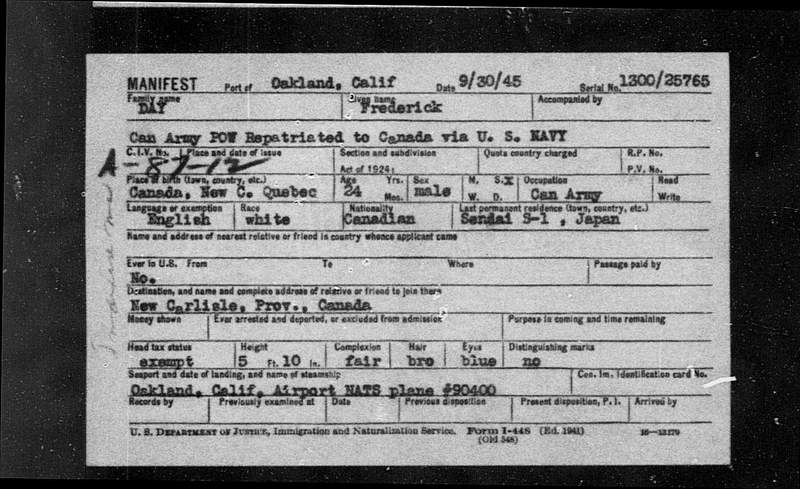 MANIFEST Port of Oakland, Calif Date 9/30/45 Serial No. 1300/25765
Family name Given name Accompanied by
DAY Frederick
Can Army POW Repatriated to Canada via U. S. NAVY
C.I.V. No. Place and date of issue Section and subdivision Quota country charged R.P. No.
A-87-12 Act of 1924: P.V. No.
Place of birth (town, country, etc.) Age Yrs. Sex M. S.X Occupation Read
Canada, New C. Quebec 24 Mos. male W. D. Can Army Write
Language or exemption Race Nationality Last permanent residence (town, country, etc.)
English white Canadian Sendai S-1 , Japan
Name and address of nearest relative or friend in country whence applicant came
Ever in U.S. From To Where Passage paid by
No.
Destination, and name and complete address of relative or friend to join there
New Carlisle, Prov., Canada
Money shown Ever arrested and deported, or excluded from admission Purpose in coming and time remaining
Head tax status Height Complexion Hair Eyes Distinguishing marks
exempt 5 Ft. 10 In. fair bro blue no
Seaport and date of landing, and name of steamship Cen. Im. Identification card No.
Oakland, Calif, Airport NATS plane #90400
Records by Previously examined at Date Previous disposition Present disposition, P. I. Arrived by
U. S. DEPARTMENT OF JUSTICE, Immigration and Naturalization Service. Form I-448 (Ed. 1941) 16—13179
(Old 548)